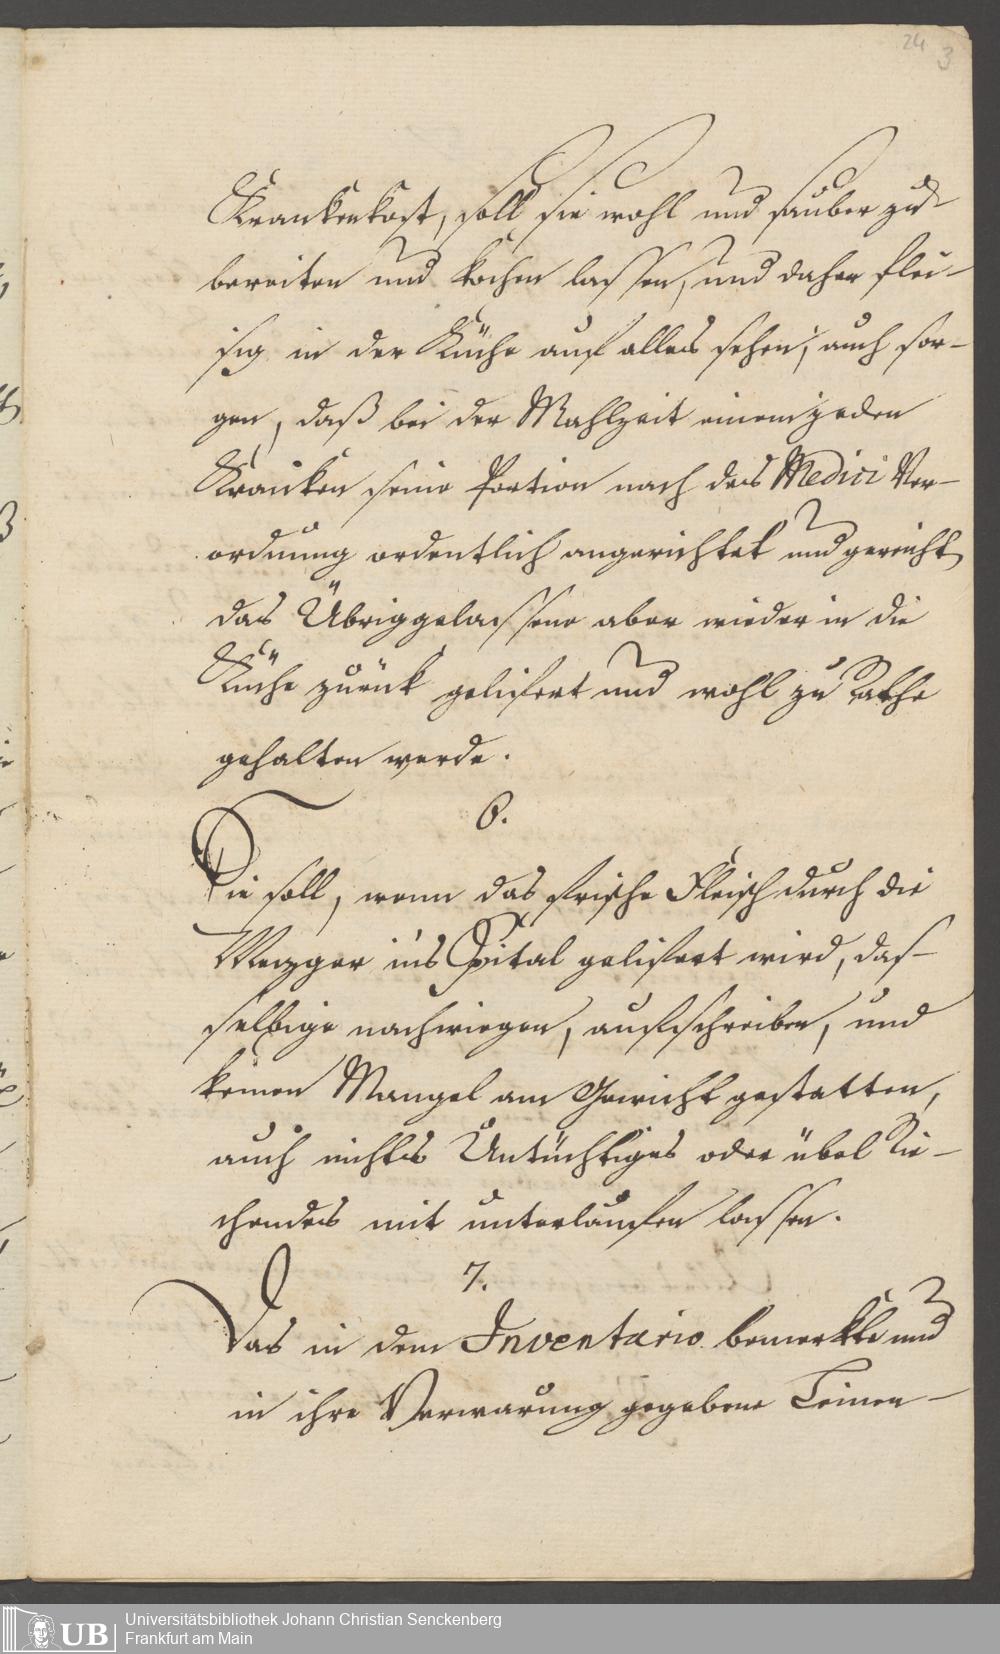 24 3
Krankenkost, soll sie wohl und sauber zu-
bereiten und kochen lassen, und daher flei-
sig in der Küche auf alles sehen, auch sor-
gen, daß bei der Mahlzeit einem jeden
Kranken seine Portion nach des Medici Ver-
ordnung ordentlich angerichtet und gereicht,
das Übriggelassene aber wieder in die
Küche zurük geliefert und wohl zu Rathe
gehalten werde.
6.
Sie soll, wenn das frische Fleisch durch die
Mezger ins Spital geliefert wird, das-
selbige nachwiegen, aufschreiben, und
keinen Mangel am Gewicht gestatten,
auch nichts Untüchtiges oder übel Rie-
chendes mit unterlaufen lassen.
7.
Das in dem Inventario bemerkte und
in ihre Verwarung gegebene Leinen-
UB
Universitätsbibliothek Johann Christian Senckenberg
Frankfurt am Main